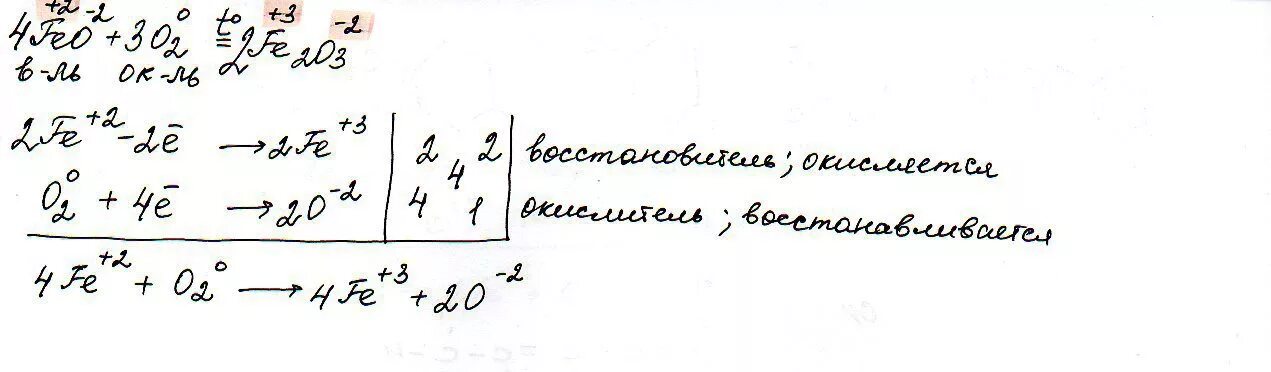 4Fe⁺²O⁻² + 3O₂⁰ t°= 2Fe⁺³₂O₃⁻²
в-ль ок-ль
2Fe⁺² - 2ē → 2Fe⁺³ | 2 4 2 | восстановитель; окисляется
O₂⁰ + 4ē → 2O⁻² | 4 1 | окислитель; восстанавливается
4Fe⁺² + O₂⁰ → 4Fe⁺³ + 2O⁻²